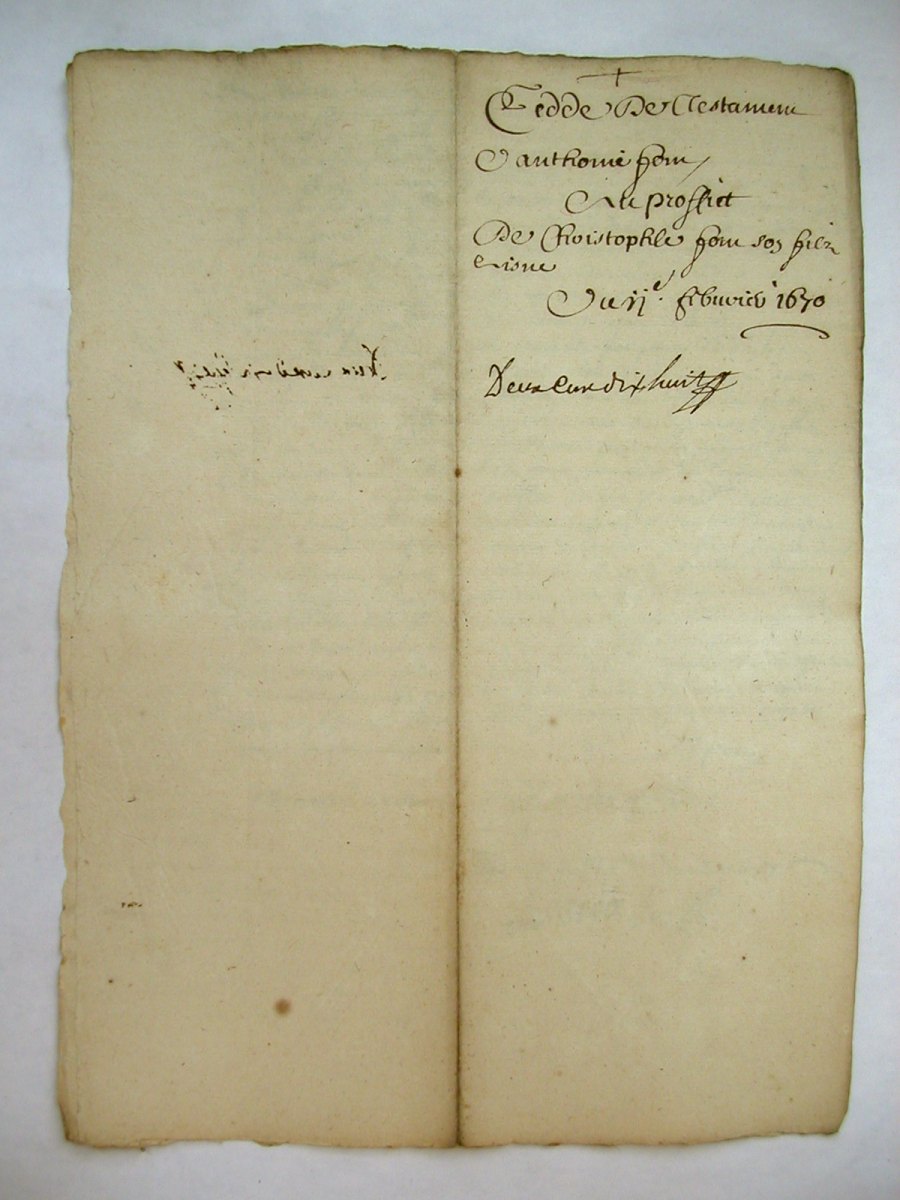 Cedde De Testament
D anthonie hom
Au proffict
De Christophle hom son filz
aisne
Du ije februier 1670
Deux cen dix huit